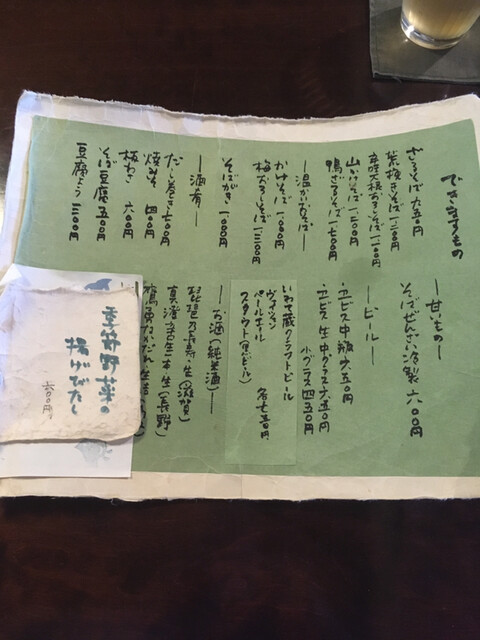 できますもの
ざるそば 九五〇円
荒挽きそば 一二〇〇円
辛味大根おろしそば 一二〇〇円
山かけそば 一二〇〇円
鴨ざるそば 一七〇〇円
―温かいおそば―
かけそば 一〇〇〇円
梅おろしそば 一二〇〇円
そばがき 一〇〇〇円
―酒肴―
だし巻き 七〇〇円
焼みそ 四〇〇円
板わさ 六〇〇円
そば豆腐 五〇〇円
豆腐よう
―甘いもの―
そばぜんざい 冷製 六〇〇円
―ビール―
・ヱビス中瓶 六五〇円
・ヱビス生中グラス 六五〇円
小グラス 四五〇円
いわて蔵クラフトビール
ヴァイツェン
ペールエール 各七五〇円
スタウト(黒ビール)
―お酒(純米酒)―
琵琶乃長寿・生(滋賀)
真澄 辛口生一本 生(長野)
季節野菜の
揚げびたし
六〇〇円